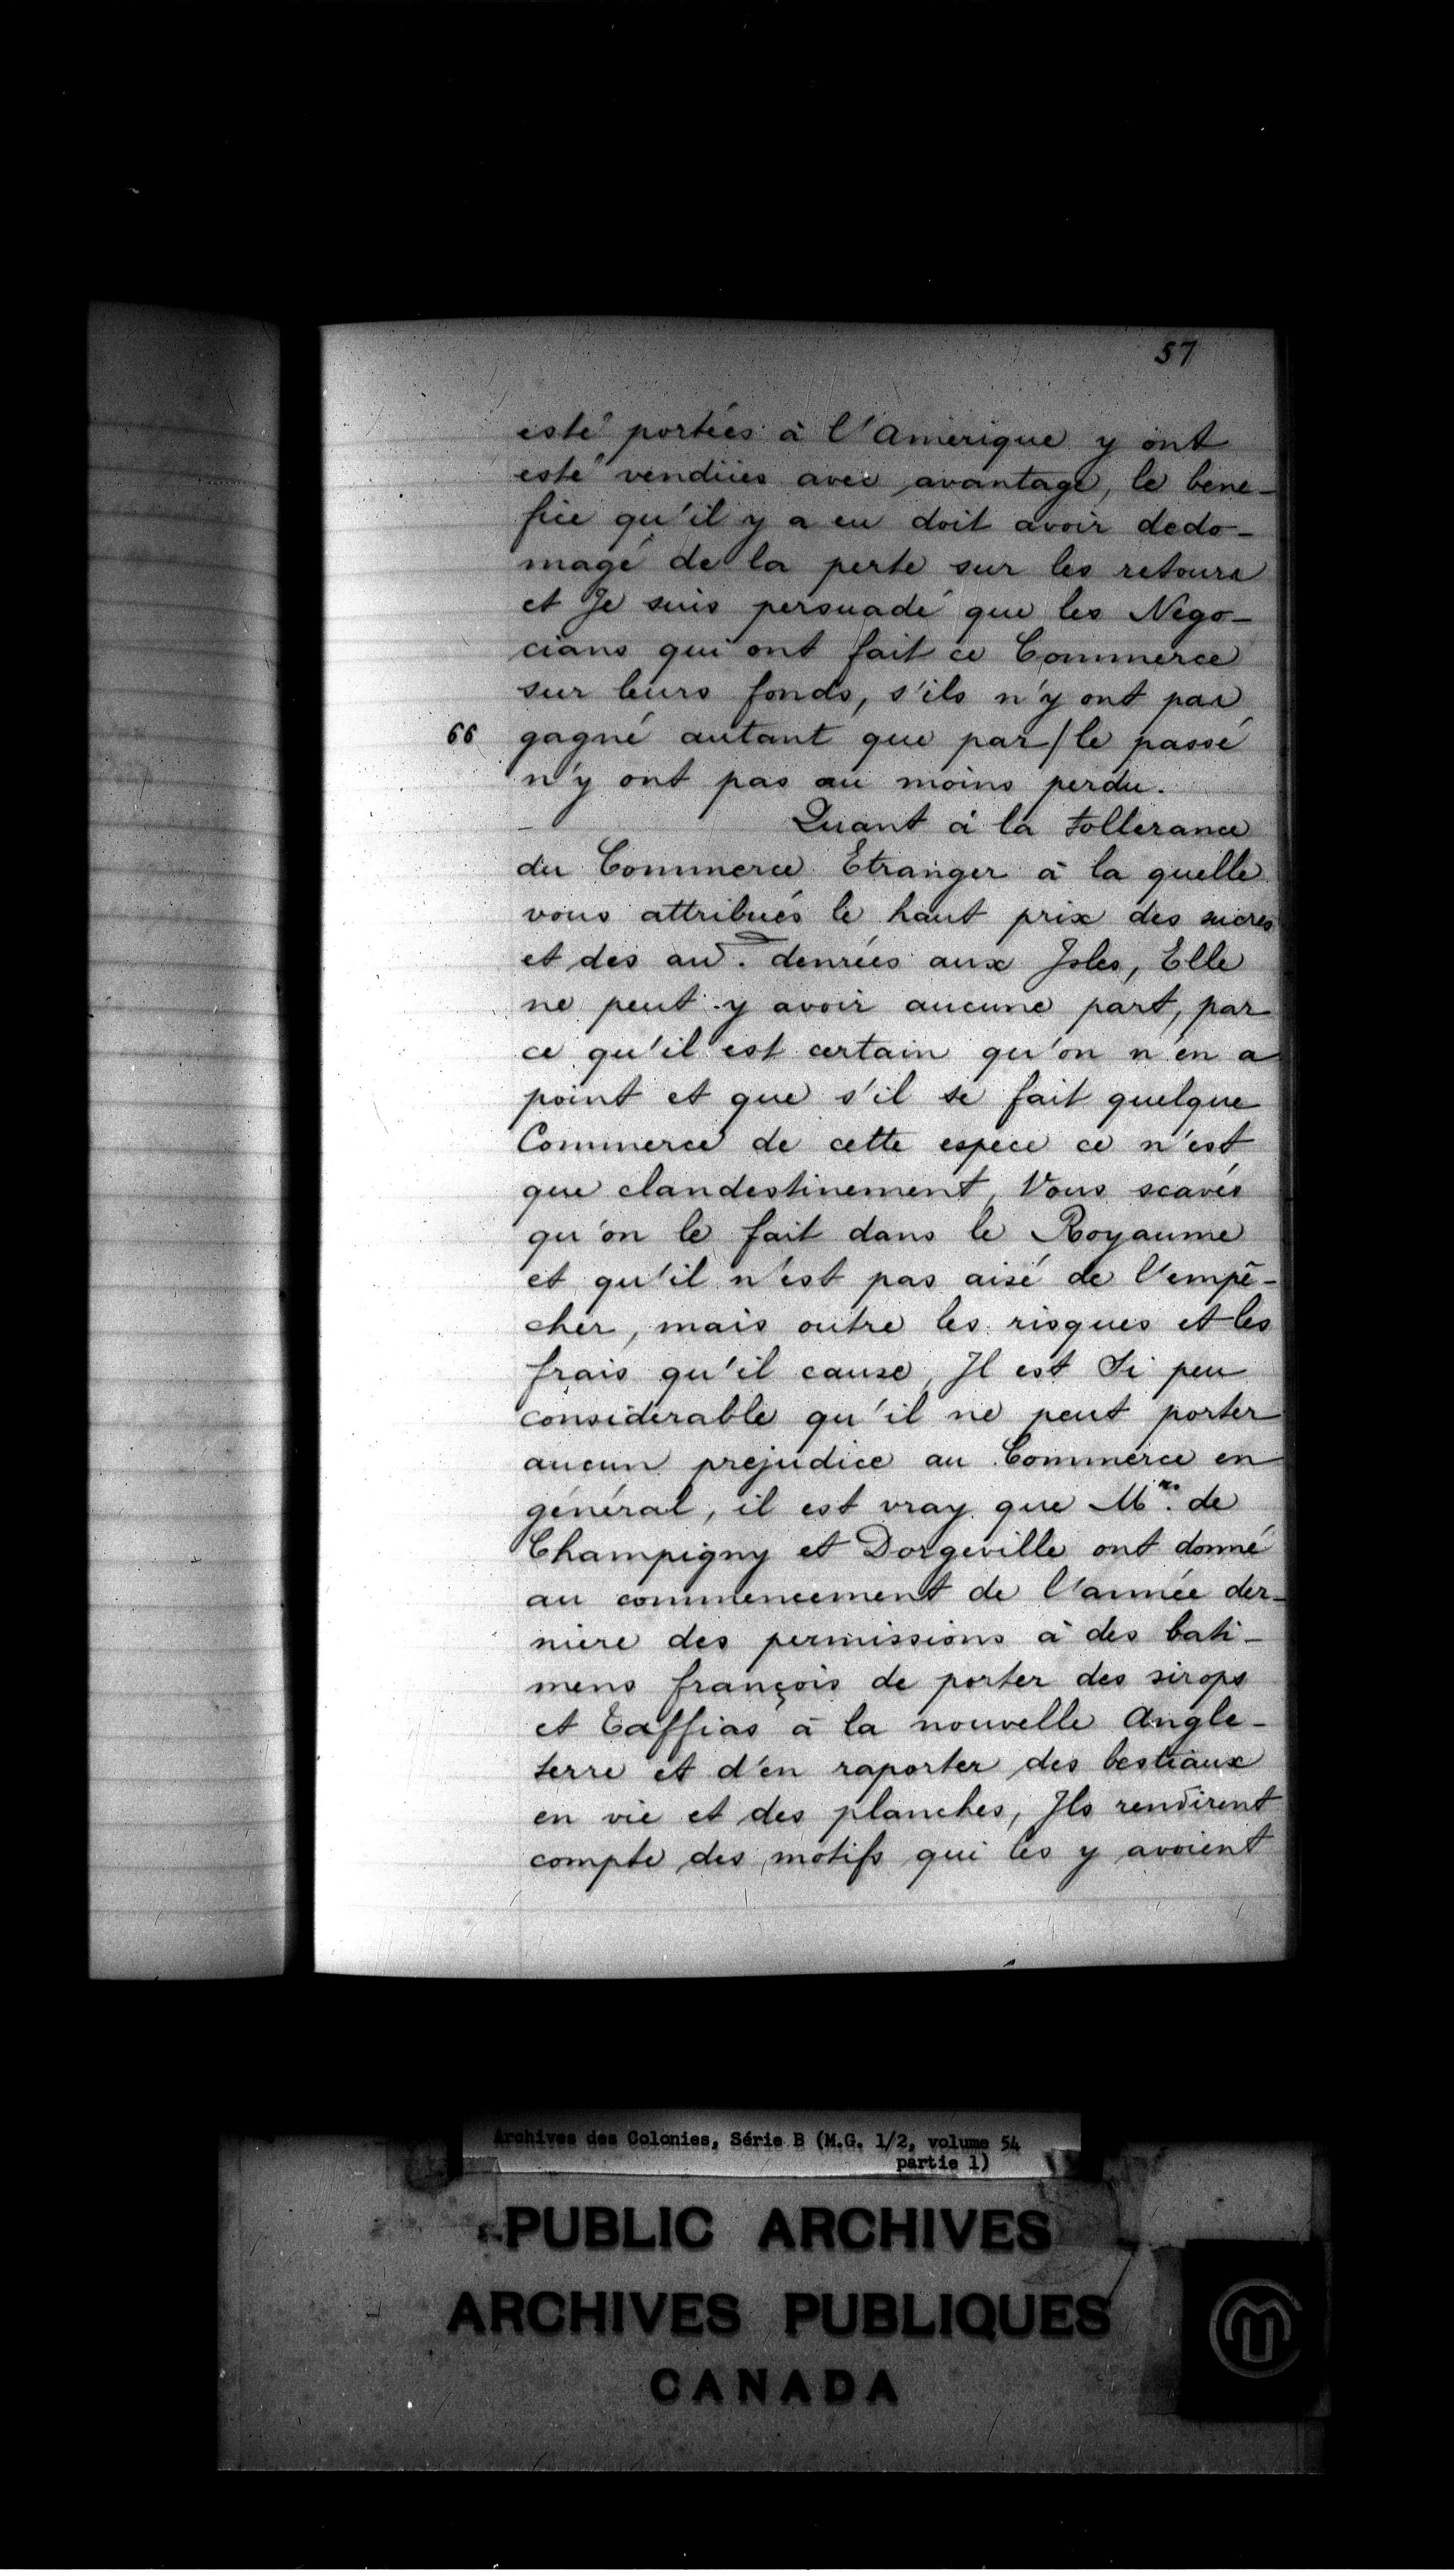 57
esté portées à l'amerique y ont
esté vendües avec avantage, le bene-
fice qu'il y a eu doit avoir dedo-
magé de la perte sur les retours
et Je suis persuadé que les Nego-
cians qui ont fait ce Commerce
sur leurs fonds, s'ils n'y ont pas
66 gagné autant que par/le passé
n'y ont pas au moins perdu.
Quant à la tollerance
du Commerce Etranger à la quelle
vous attribués le haut prix des sucres
et des aut. denrées aux Isles, Elle
ne peut y avoir aucune part, par
ce qu'il est certain qu'on n'en a
point et que s'il se fait quelque
Commerce de cette espece ce n'est
que clandestinement, Vous scavés
qu'on le fait dans le Royaume
et qu'il n'est pas aisé de l'empê-
cher, mais outre les risques et les
frais qu'il cause, Il est Si peu
considerable qu'il ne peut porter
aucun prejudice au Commerce en
général, il est vray que Mrs. de
Champigny et Dorgeville ont donné
au commencement de l'année der-
niere des permissions à des bati-
mens françois de porter des sirops
et Taffias à la nouvelle angle-
terre et d'en raporter des bestiaux
en vie et des planches, Ils rendirent
compte des motifs qui les y avoient
Archives des Colonies, Série B (M.G. 1/2, volume 54
partie 1)
PUBLIC ARCHIVES
ARCHIVES PUBLIQUES
CANADA